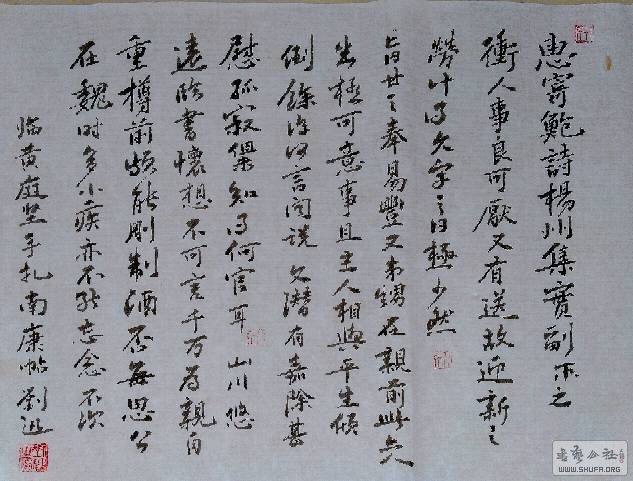 惠寄鲍詩楊州集實副所乏
衝人事良可厭又有送故迎新之
勞計得文字之日極少然
旨甘之奉易豐又弟甥在親前此亦
出極可意事且主人相與平生傾
倒餘言闻説文潜有嘉除甚
慰孤寂知得何官耳 山川悠
遠臨書懷想不可言千万為親自
重樽前頗能剛制酒否每思公
在魏时多小疾亦不能忘念不次
临黄庭坚手札南康帖 劉
書藝公社
WWW.SHUFA.ORG